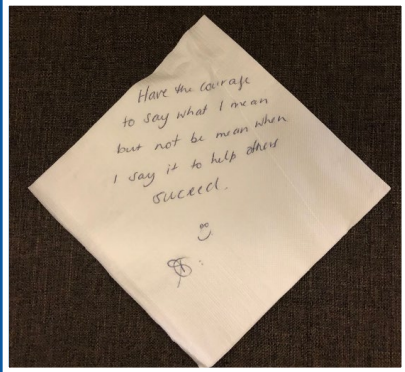 Have the courage
to say what I mean
but not be mean when
I say it to help others
succeed.